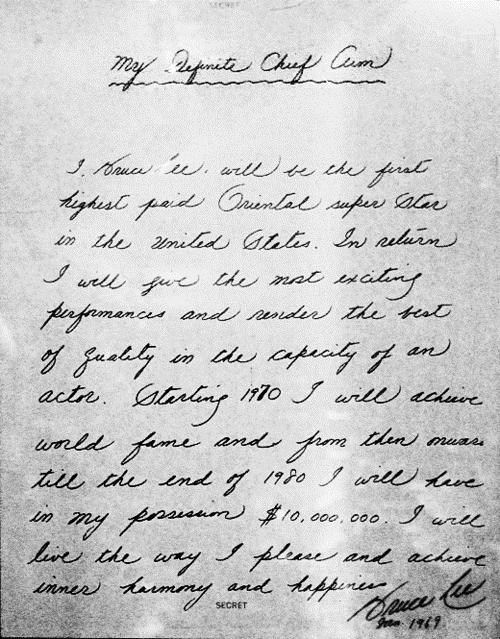 SECRET
My Definite Chief Aim
I, Bruce Lee, will be the first
highest paid Oriental super Star
in the United States. In return
I will give the most exciting
performances and render the best
of quality in the capacity of an
actor. Starting 1970 I will achieve
world fame and from then onward
till the end of 1980 I will have
in my possession $10,000,000. I will
live the way I please and achieve
inner harmony and happiness
Bruce Lee
Jan. 1969
SECRET